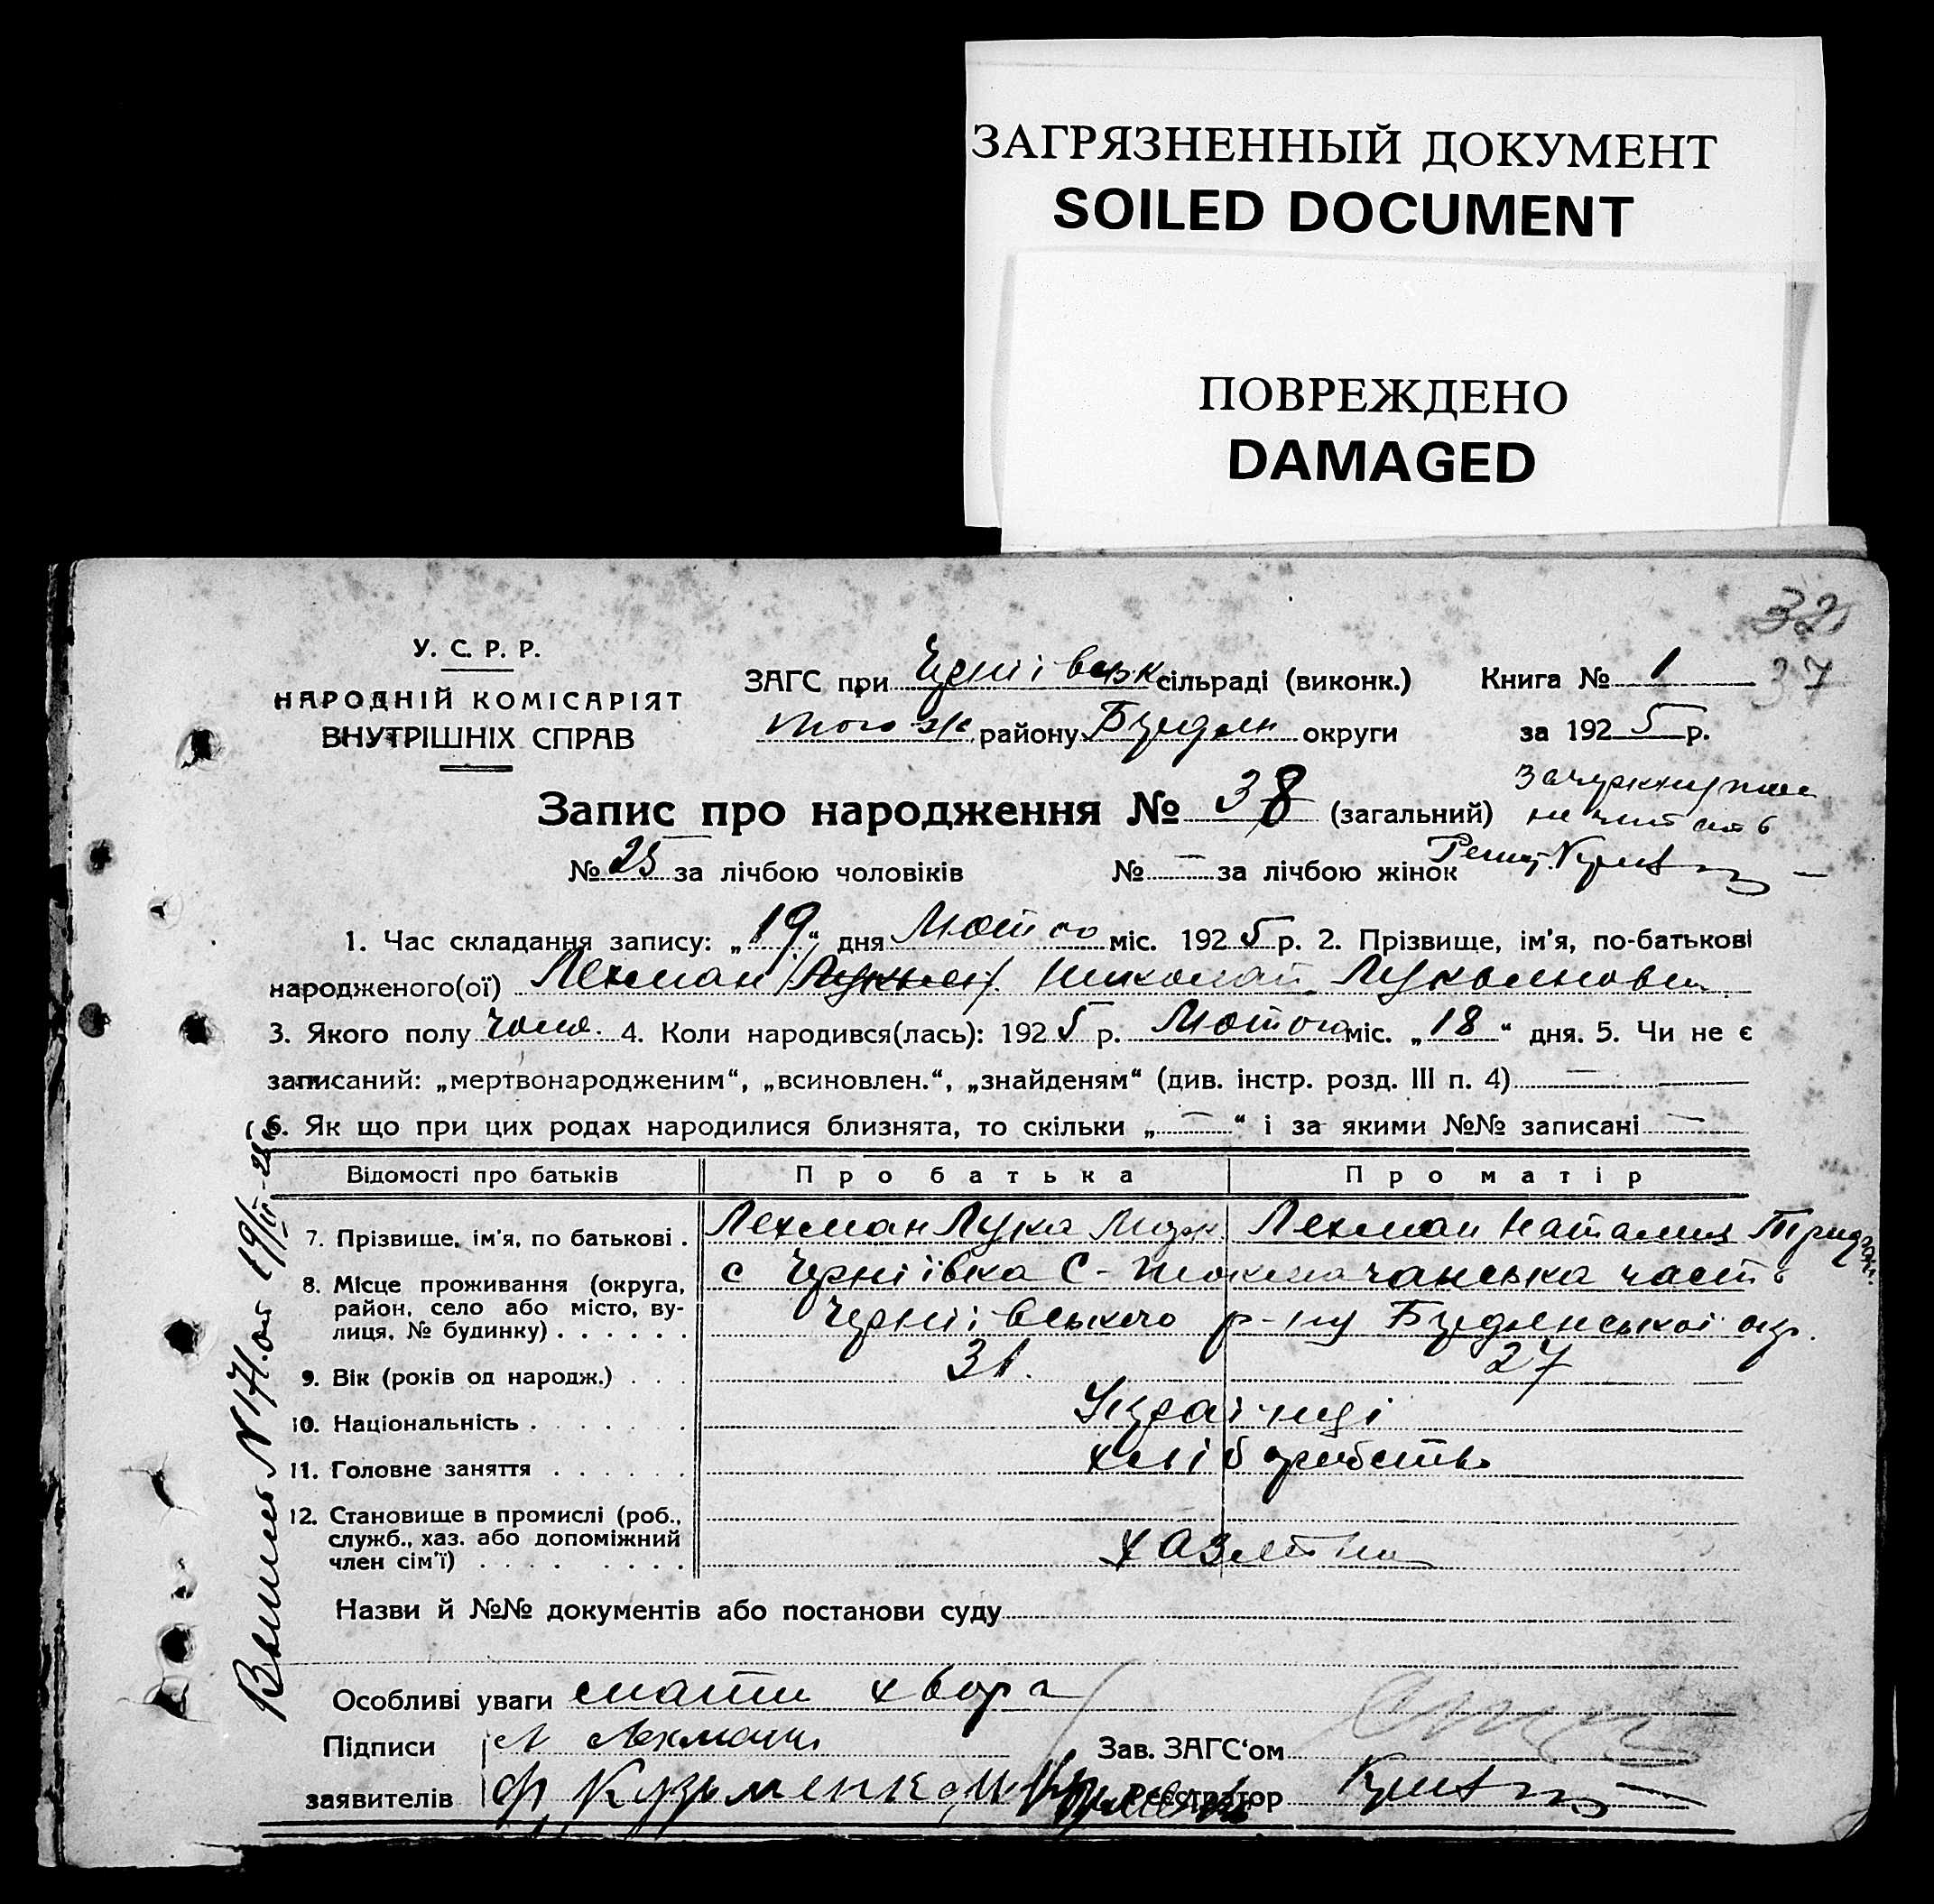 ЗАГРЯЗНЕННЫЙ ДОКУМЕНТ
SOILED DOCUMENT
ПОВРЕЖДЕНО
DAMAGED
32
37
У. С. Р. Р.
НАРОДНІЙ КОМІСАРІЯТ
ВНУТРІШНІХ СПРАВ
ЗАГС при Черніівськ сільраді (виконк.) Книга № 1
того ж району Бердян округи за 1925 р.
Запис про народження № 38 (загальний)
№ 25 за лічбою чоловіків № — за лічбою жінок
1. Час складання запису: „19“ дня Лютого міс. 1925 р. 2. Прізвище, ім'я, по-батькові
народженого(ої) Лехман Николай Лукьянович
3. Якого полу чолов. 4. Коли народився(лась): 1925 р. Лютого міс. „18“ дня. 5. Чи не є
записаний: „мертвонародженим“, „всиновлен.“, „знайденям“ (див. інстр. розд. III п. 4) —
6. Як що при цих родах народилися близнята, то скільки „—“ і за якими №№ записані —
Відомості про батьків Про батька Про матір
7. Прізвище, ім'я, по батькові . Лехман Лука Лехман Наталия
8. Місце проживання (округа, район, село або місто, вулиця, № будинку) . . . . . . с Черніівка С-Токмачанська часть
Черніівського р-ну Бердянської окр.
9. Вік (років од народж.) . . . 31. 27
10. Національність . . . . . . Українці
11. Головне заняття . . . . . . хліборобство
12. Становище в промислі (роб., служб., хаз. або допоміжний член сім'ї) . . . . . . . .
Назви й №№ документів або постанови суду
Особливі уваги мати хвора
Підписи Л Лехман Зав. ЗАГС'ом
заявителів Ф Кузьменко Реєстратор